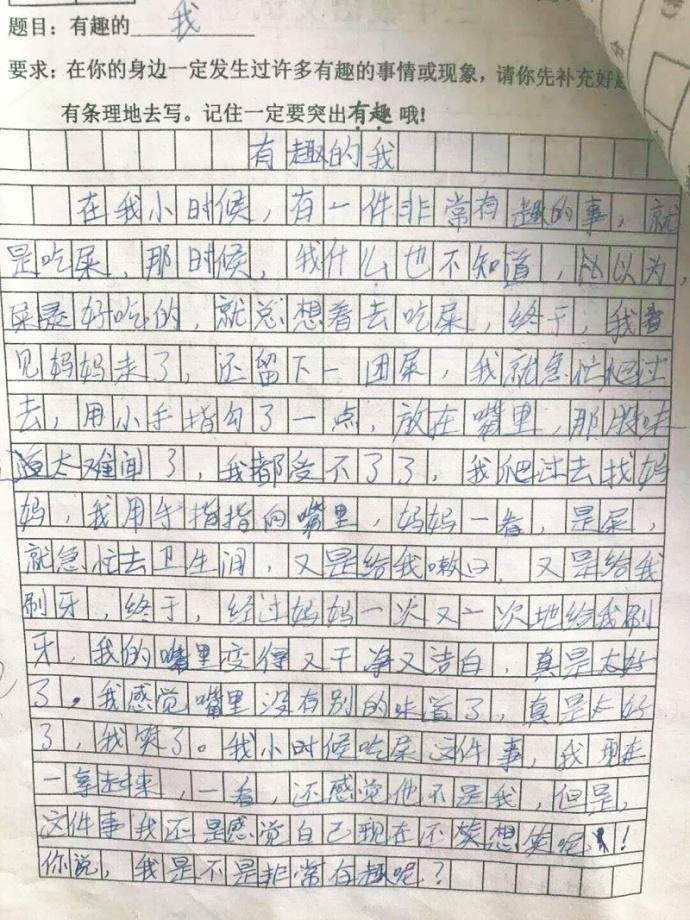 题目：有趣的 我
要求：在你的身边一定发生过许多有趣的事情或现象，请你先补充好
有条理地去写。记住一定要突出有趣哦！
有趣的我
在我小时候，有一件非常有趣的事，就
是吃屎，那时候，我什么也不知道，以为，
屎是好吃的，就总想着去吃屎，终于，我看
见妈妈来了，还留下一团屎，我就急忙爬过
去，用小手指勾了一点，放在嘴里，那股味
道太难闻了，我都受不了了，我爬过去找妈
妈，我用手指指向嘴里，妈妈一看，是屎，
就急忙去卫生间，又是给我嗽口，又是给我
刷牙，终于，经过妈妈一次又一次地给我刷
牙，我的嘴里变得又干净又洁白，真是太好
了。我感觉嘴里没有别的味道了，真是太好
了，我笑了。我小时候吃屎这件事，我现在
一拿起来，一看，还感觉他不是我，但是，
这件事我还是感觉自己现在还笑想笑呢！
你说，我是不是非常有趣呢？